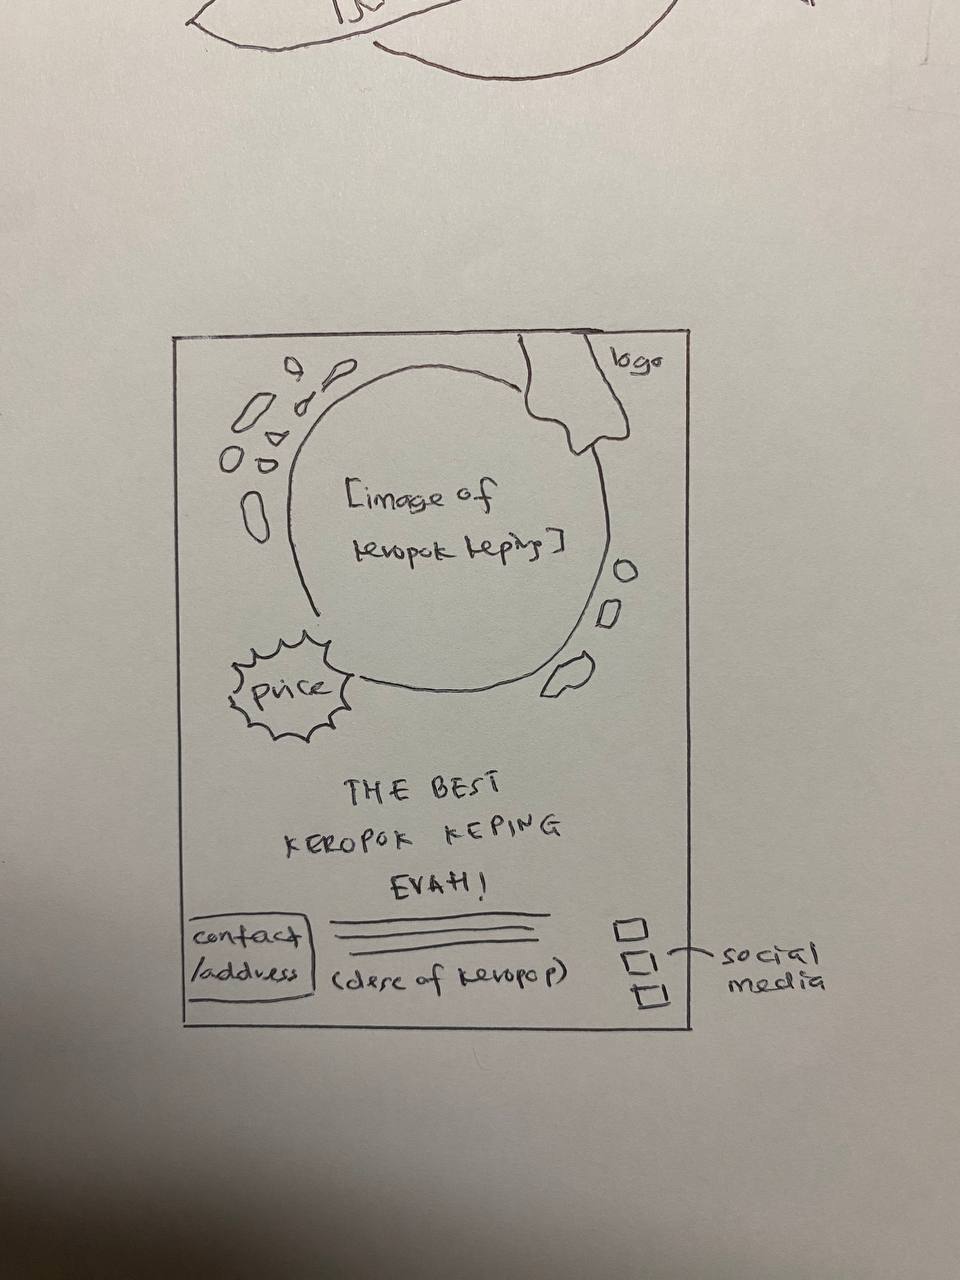 logo
[image of
keropok keping]
price
THE BEST
KEROPOK KEPING
EVAH!
contact
/address
(desc of keropop)
social
media